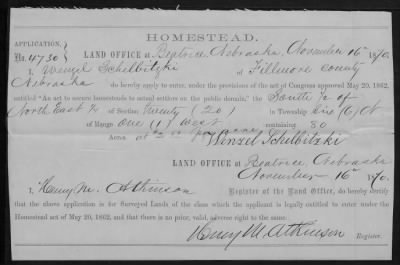 HOMESTEAD.
APPLICATION
No. 4730
LAND OFFICE at Beatrice, Nebraska, November 16th 1870.
I, Wenzel Schelbitzki of Fillmore County
Nebraska do hereby apply to enter, under the provisions of the act of Congress approved May 20, 1862,
entitled "An act to secure homesteads to actual settlers on the public domain," the South ½ of
North East ¼ of Section Twenty (20) in Township Six (6) N
of Range One (1) West containing 80
Acres
Wenzel Schelbitzki
LAND OFFICE at Beatrice Nebraska
November 16th 1870.
I, Henry M. Atkinson Register of the Land Office, do hereby certify
that the above application is for Surveyed Lands of the class which the applicant is legally entitled to enter under the
Homestead act of May 20, 1862, and that there is no prior, valid, adverse right to the same.
Henry M. Atkinson
Register.